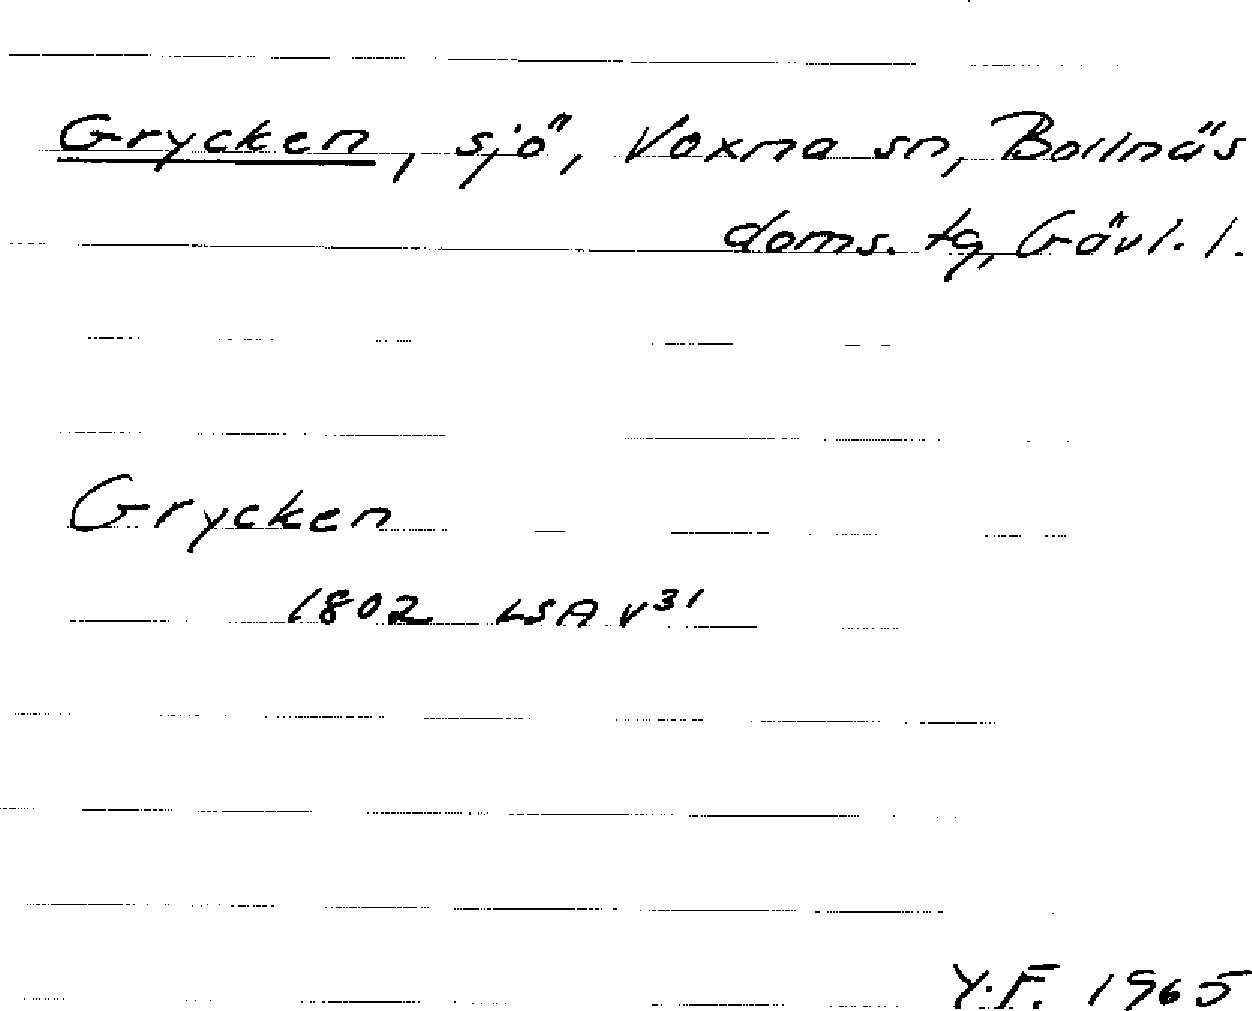 Grycken, sjö, Voxna sn, Bollnäs
doms. tg, Gävl. l.
Grycken
1802 LSA V31
Y.F. 1965